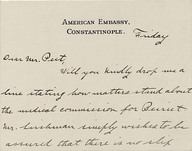 AMERICAN EMBASSY,
CONSTANTINOPLE.
Friday
Dear Mr. Peet,
Will you kindly drop me a
line stating how matters stand about
the medical commission for Beirut
Mr. simply wishes to be
assured that there is no slip